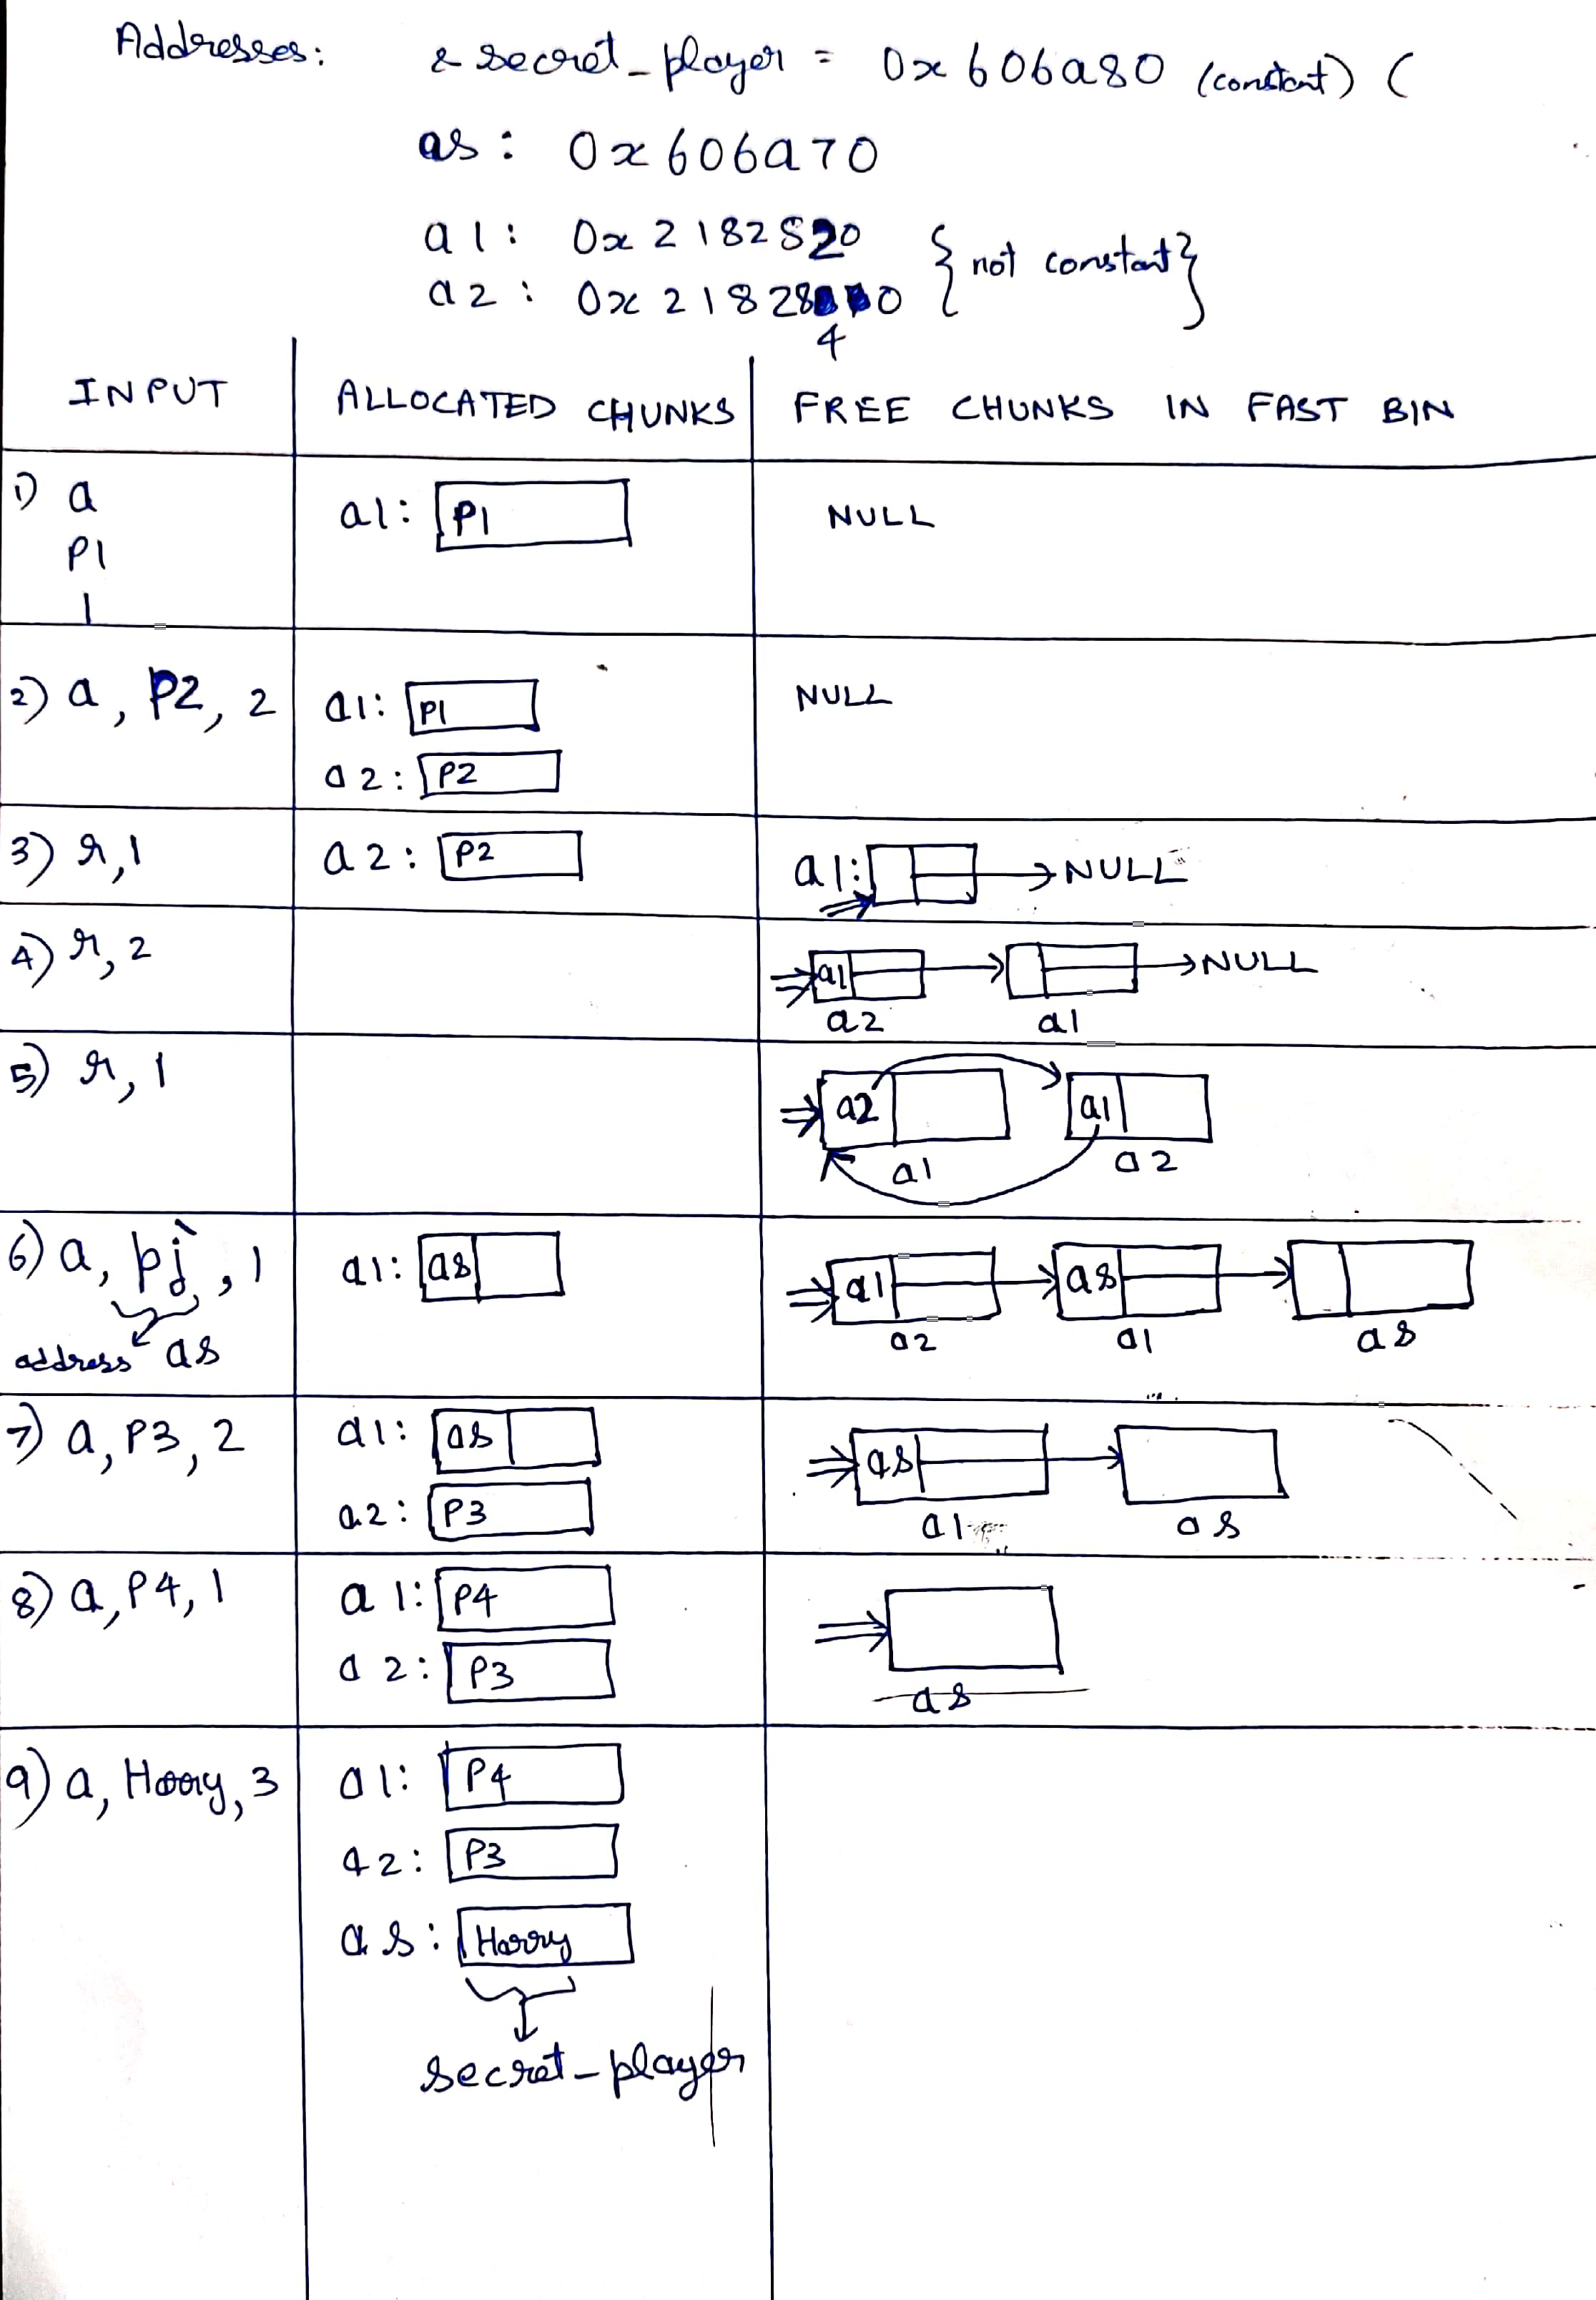 Addresses: & secret_player = 0x606a80 (constant) (
as: 0x606a70
a1: 0x2182820
a2: 0x2182840 {not constant}
INPUT ALLOCATED CHUNKS FREE CHUNKS IN FAST BIN
1) a a1: P1 NULL
P1
1
2) a, P2, 2 a1: P1 NULL
a2: P2
3) r,1 a2: P2 a1: → NULL
4) r,2 a1 → → NULL
a2 a1
5) r,1 a2 a1
a1 a2
6) a, pj, 1 a1: as a1 → as →
address as a2 a1 as
7) a, P3, 2 a1: as as →
a2: P3 a1 as
8) a, P4, 1 a1: P4
a2: P3 as
9) a, Harry, 3 a1: P4
a2: P3
as: Harry
secret_player